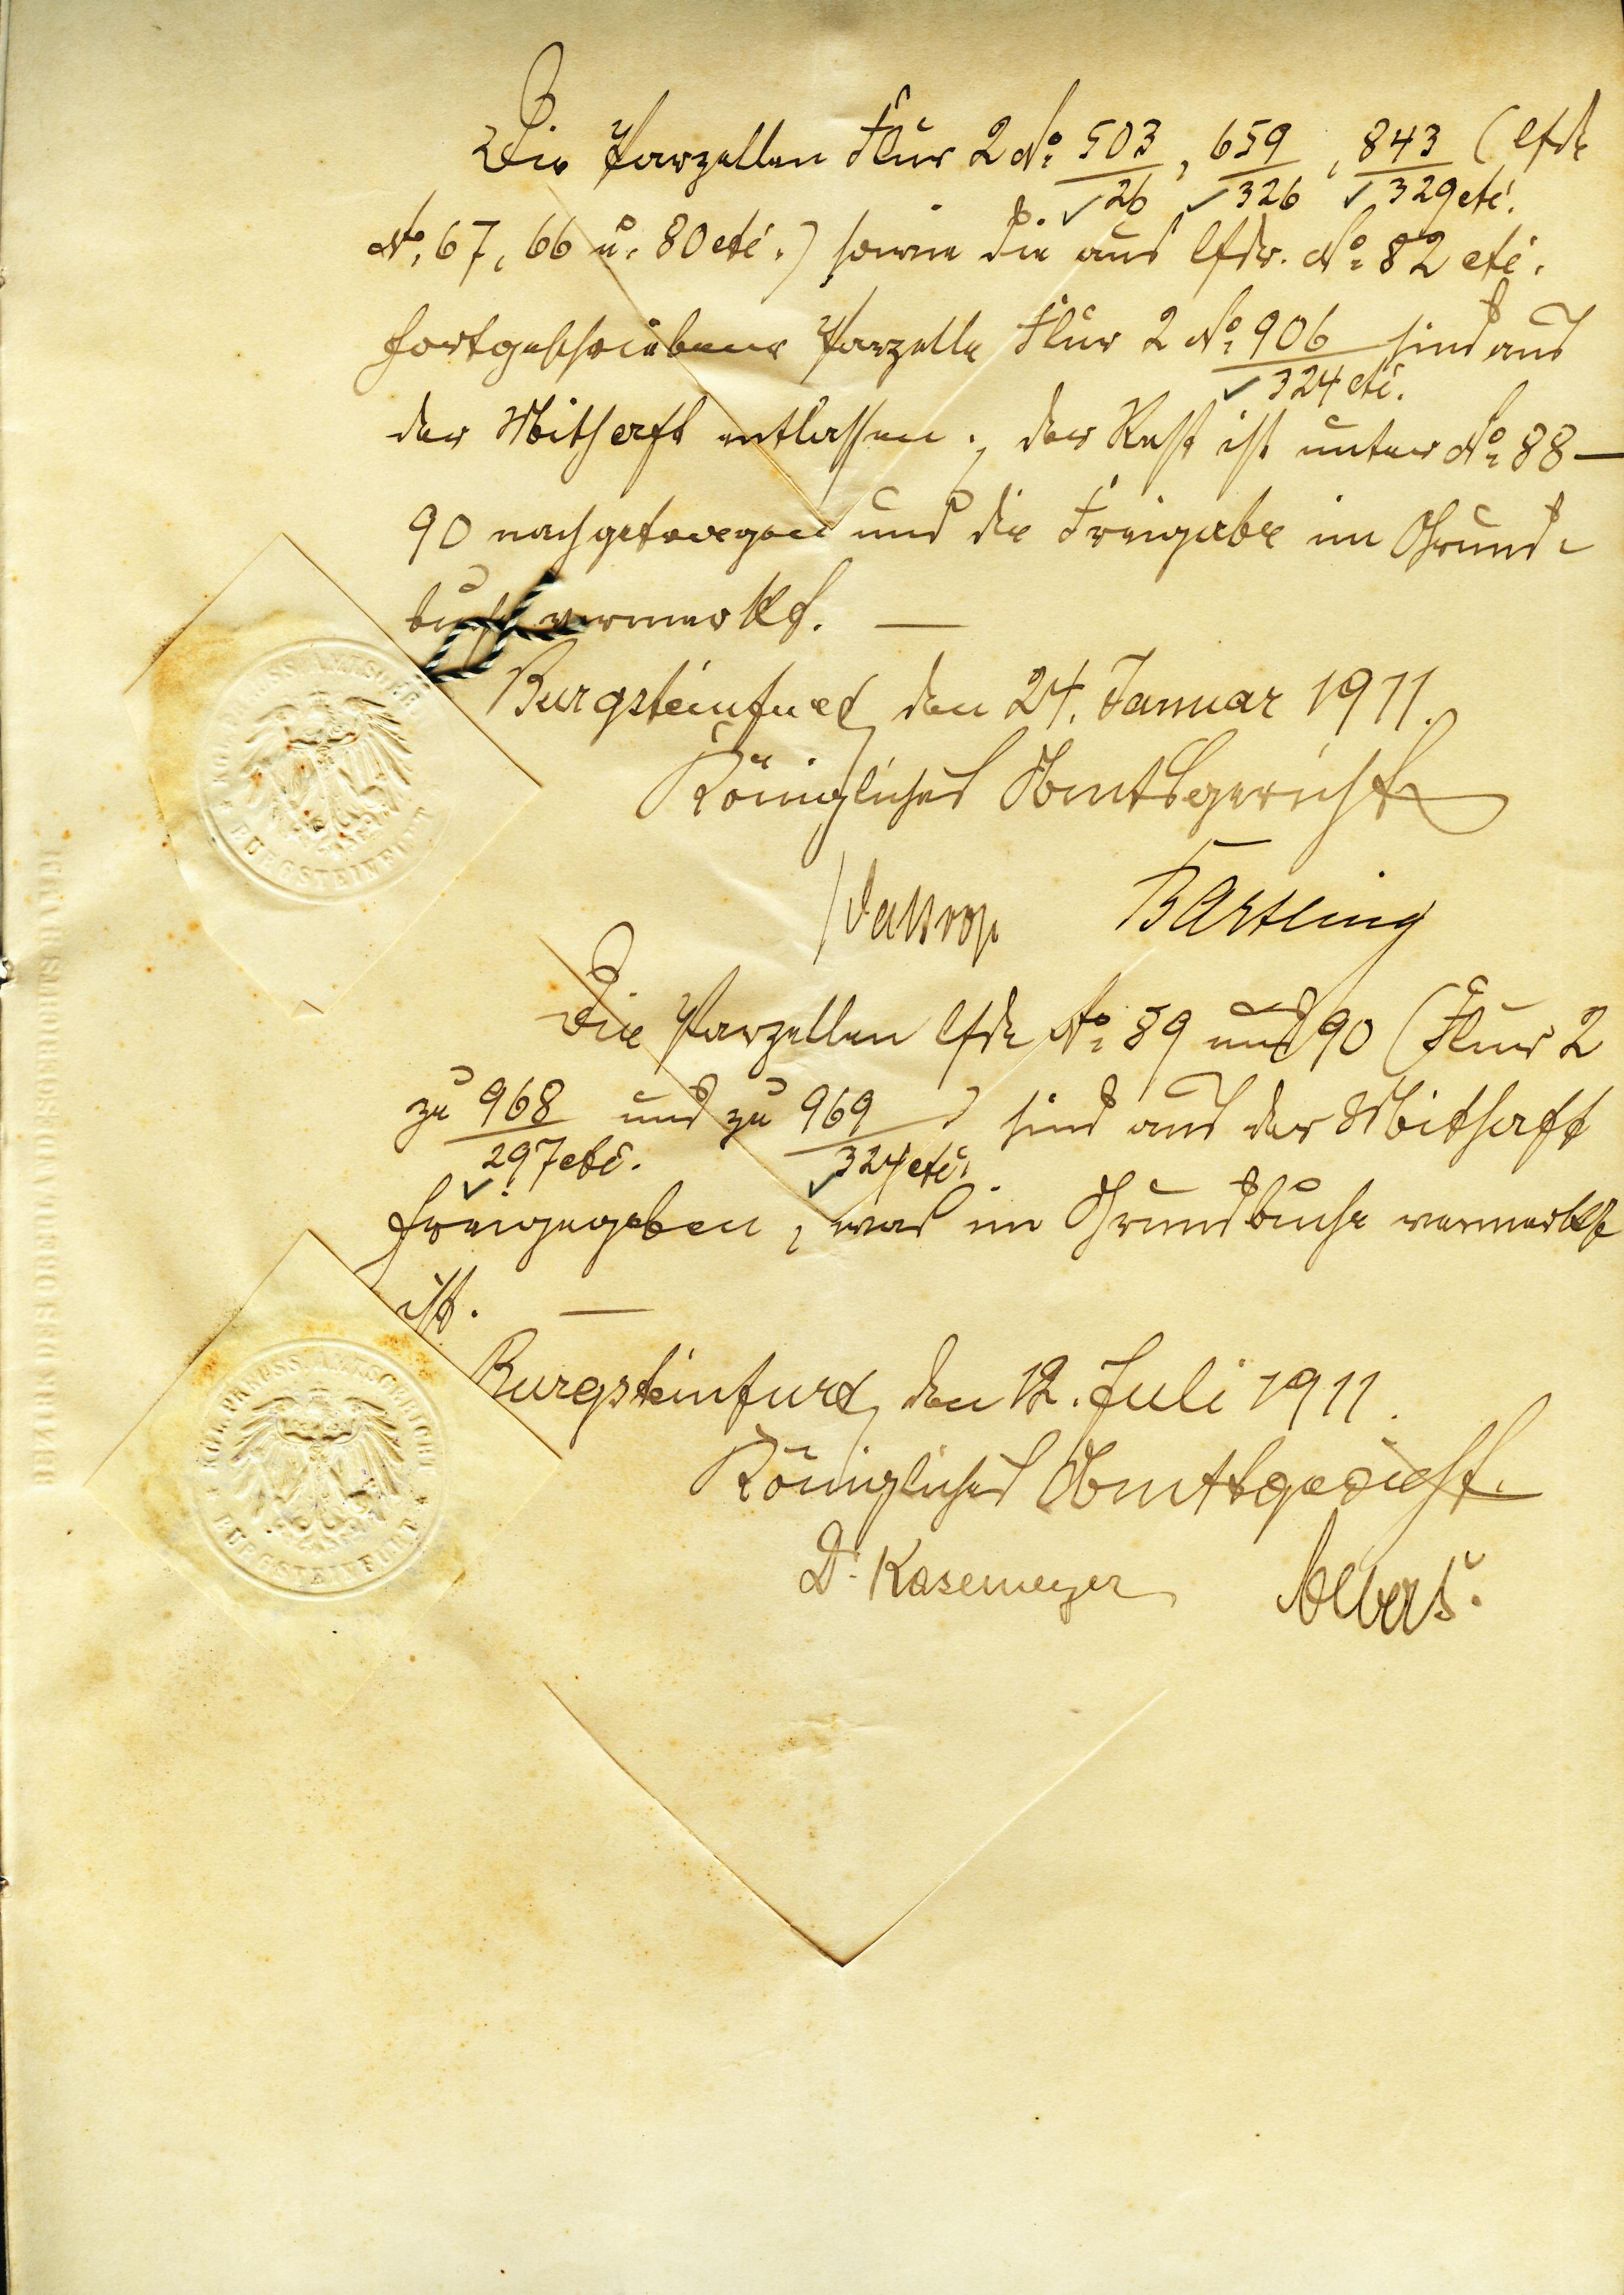 Die Parzellen Flur 2 No. 503/26, 659/326, 843/329 etc. (lfde
No. 67, 66 u. 80 etc.) sowie die aus lfdr. No. 82 etc.
fortgeschriebene Parzelle Flur 2 No. 906/324 etc. sind aus
der Mithaft entlassen; der Rest ist unter No. 88 –
90 nachgetragen und die Freigabe im Grund-
buch vermerkt. —
Burgsteinfurt, den 24. Januar 1911.
Königliches Amtsgericht
Bartling
Die Parzellen lfde No. 89 und 90 (Flur 2
zu 968/297 etc. und zu 969/324 etc.) sind aus der Mithaft
freigegeben, was im Grundbuche vermerkt
ist. —
Burgsteinfurt, den 12. Juli 1911.
Königliches Amtsgericht.
Dr. Kasemeyer Albers.
KGL. PREUSS. AMTSGERICHT
* BURGSTEINFURT *
KGL. PREUSS. AMTSGERICHT
* BURGSTEINFURT *